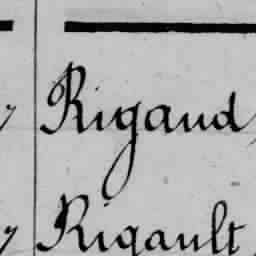 Rigaud
Rigault